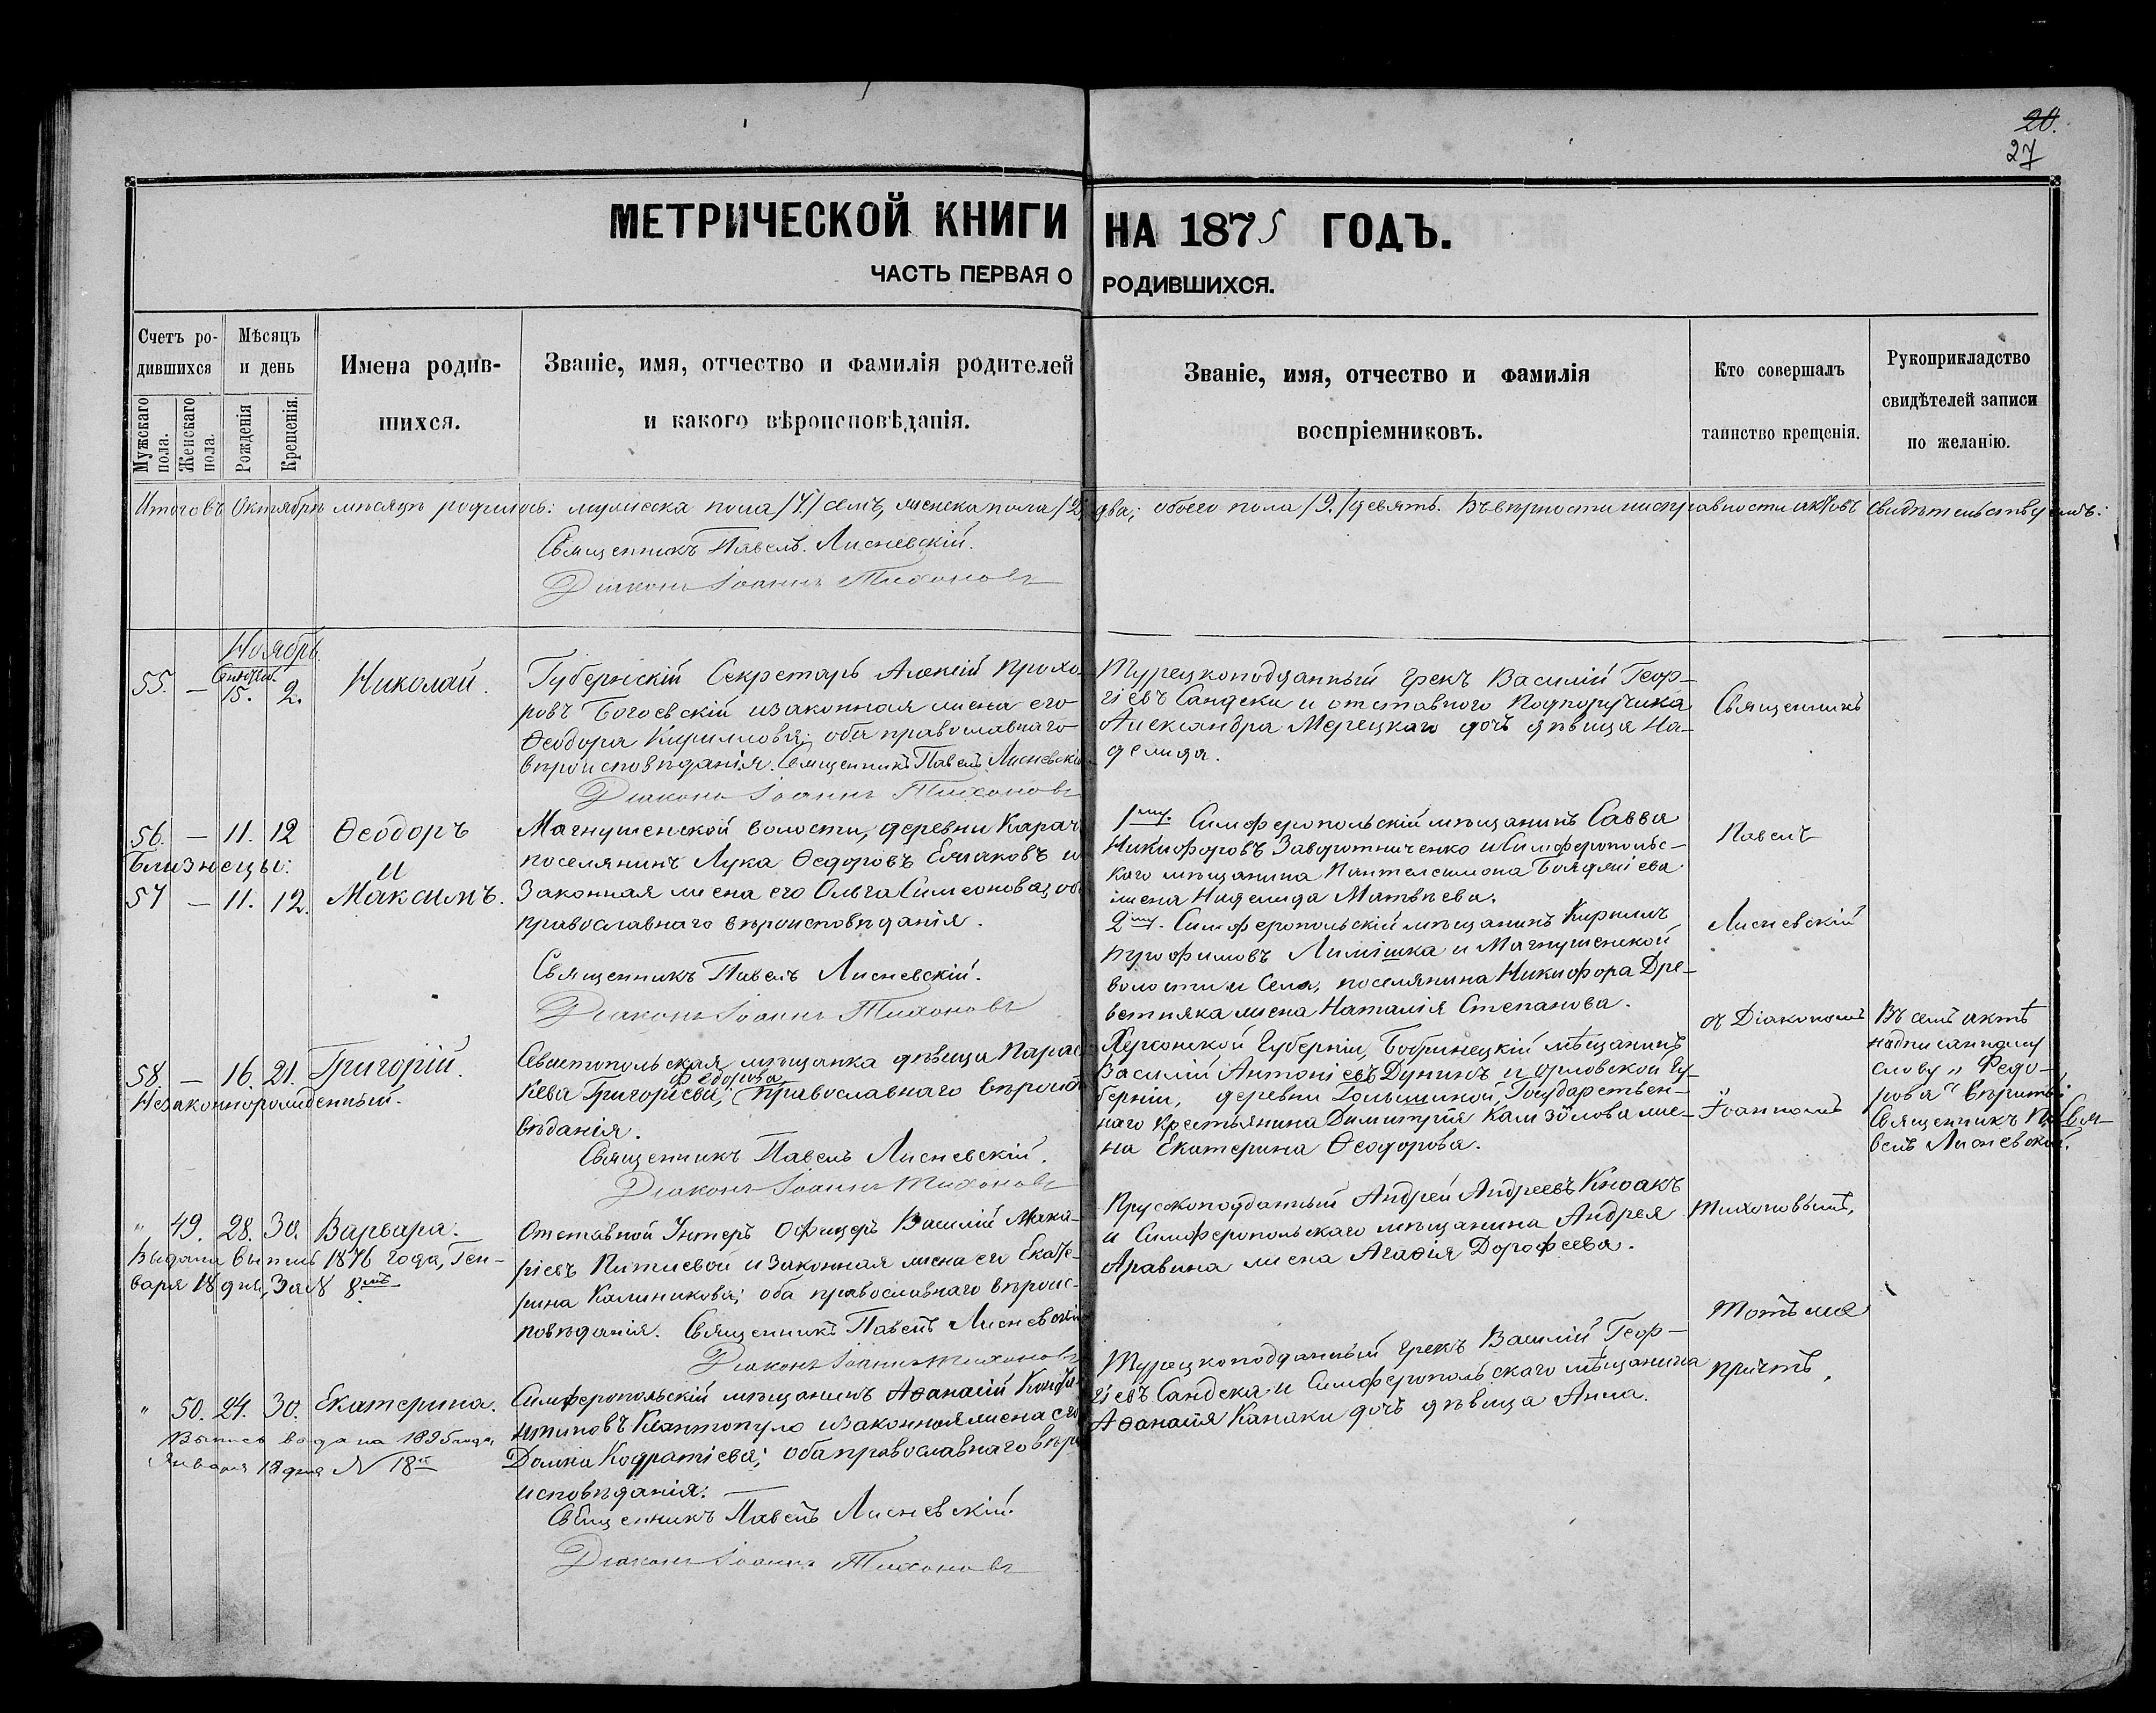 20.
27
МЕТРИЧЕСКОЙ КНИГИ НА 1875 ГОДЪ.
ЧАСТЬ ПЕРВАЯ О РОДИВШИХСЯ.
Счетъ ро-
дившихся
Мужскаго пола.
Женскаго пола.
Мѣсяцъ
и день
Рожденія
Крещенія.
Имена родив-
шихся.
Званіе, имя, отчество и фамилія родителей
и какого вѣроисповѣданія.
Званіе, имя, отчество и фамилія
воспріемниковъ.
Кто совершалъ
таинство крещенія.
Рукоприкладство
свидѣтелей записи
по желанію.
Итого въ Октябрѣ мѣсяцѣ родилось: мужеска пола /7/ семь, женска пола /2/ два; обоего пола /9/ девять. Въ вѣрности и исправности актовъ свидѣтельствуемъ:
Священникъ Павелъ Лисневскій.
Діаконъ Іоаннъ Тихоновъ
Ноябрь.
55. — 15. 2. Николай.
Губернскій Секретарь Алексій Прохо-
ровъ Богоевскій и законная жена его
Ѳеодора Кириллова; оба православнаго
вѣроисповѣданія. Священникъ Павелъ Лисневскій
Діаконъ Іоаннъ Тихоновъ
Турецкоподданный грекъ Василій Геор-
гіевъ Сандеки и отставного Подпоручика
Александра Мерецкаго дочь дѣвица На-
делида.
Священникъ
56. — 11. 12 Ѳеодоръ
Близнецы: и
57 — 11. 12. Максимъ.
Магнушенской волости, деревни Карач
поселянинъ Лука Ѳедоровъ и
законная жена его Ольга Симеонова, оба
православнаго вѣроисповѣданія.
Священникъ Павелъ Лисневскій.
Діаконъ Іоаннъ Тихоновъ
1му. Симферопольскій мѣщанинъ Савва
Никифоровъ Заворотниченко и Симферополь-
скаго мѣщанина Пантелеимона
жена Надежда Матвѣева.
2му. Симферопольскій мѣщанинъ Кириллъ
и Магнушенской
волости и Села, поселянина Никифора Дре-
ветняка жена Наталія Степанова.
Павелъ
Лисневскій
58. — 16. 21. Григорій.
Незаконнорожденный.
Севастопольская мѣщанка дѣвица Парас-
Федорова
кева Григорьева, православнаго вѣроиспо-
вѣданія.
Священникъ Павелъ Лисневскій.
Діаконъ Іоаннъ Тихоновъ
Херсонской Губерніи, Бобринецкій мѣщанинъ
Василій Антоніевъ Дунинъ и Орловской Гу-
берніи, деревни Голышиной, Государствен-
наго Крестьянина Димитрія Камзолова же-
на Екатерина Ѳеодорова.
съ Діакономъ
Іоанномъ
Въ семъ актѣ
надписанному
слову „Федо-
рова“ вѣрить
Священникъ Па-
велъ Лисневскій.
„ 49. 28. 30. Варвара.
Выдана выпись 1876 года, Ген-
варя 18 дня, за № 8мъ
Отставной Унтеръ Офицеръ Василій Мака-
ріевъ и законная жена его Екате-
рина Калиникова; оба православнаго вѣроис-
повѣданія. Священникъ Павелъ Лисневскій
Діаконъ Іоаннъ Тихоновъ
Прусскоподданный Андрей Андреевъ Кноакъ
и Симферопольскаго мѣщанина Андрея
Аравина жена Агафія Дорофеева.
Тихоновымъ,
Тотъ же
причтъ,
„ 50. 24. 30. Екатерина.
Выпись выдана 1895 года,
Января 18 дня № 18й
Симферопольскій мѣщанинъ Аѳанасій Конста-
нтиновъ Ксантопуло и законная жена его
Домна Кодратіева; оба православнаго вѣро-
исповѣданія. —
Священникъ Павелъ Лисневскій.
Діаконъ Іоаннъ Тихоновъ
Турецкоподданный грекъ Василій Геор-
гіевъ Сандеки и Симферопольскаго мѣщанина
Аѳанасія Канаки дочь дѣвица Анна.